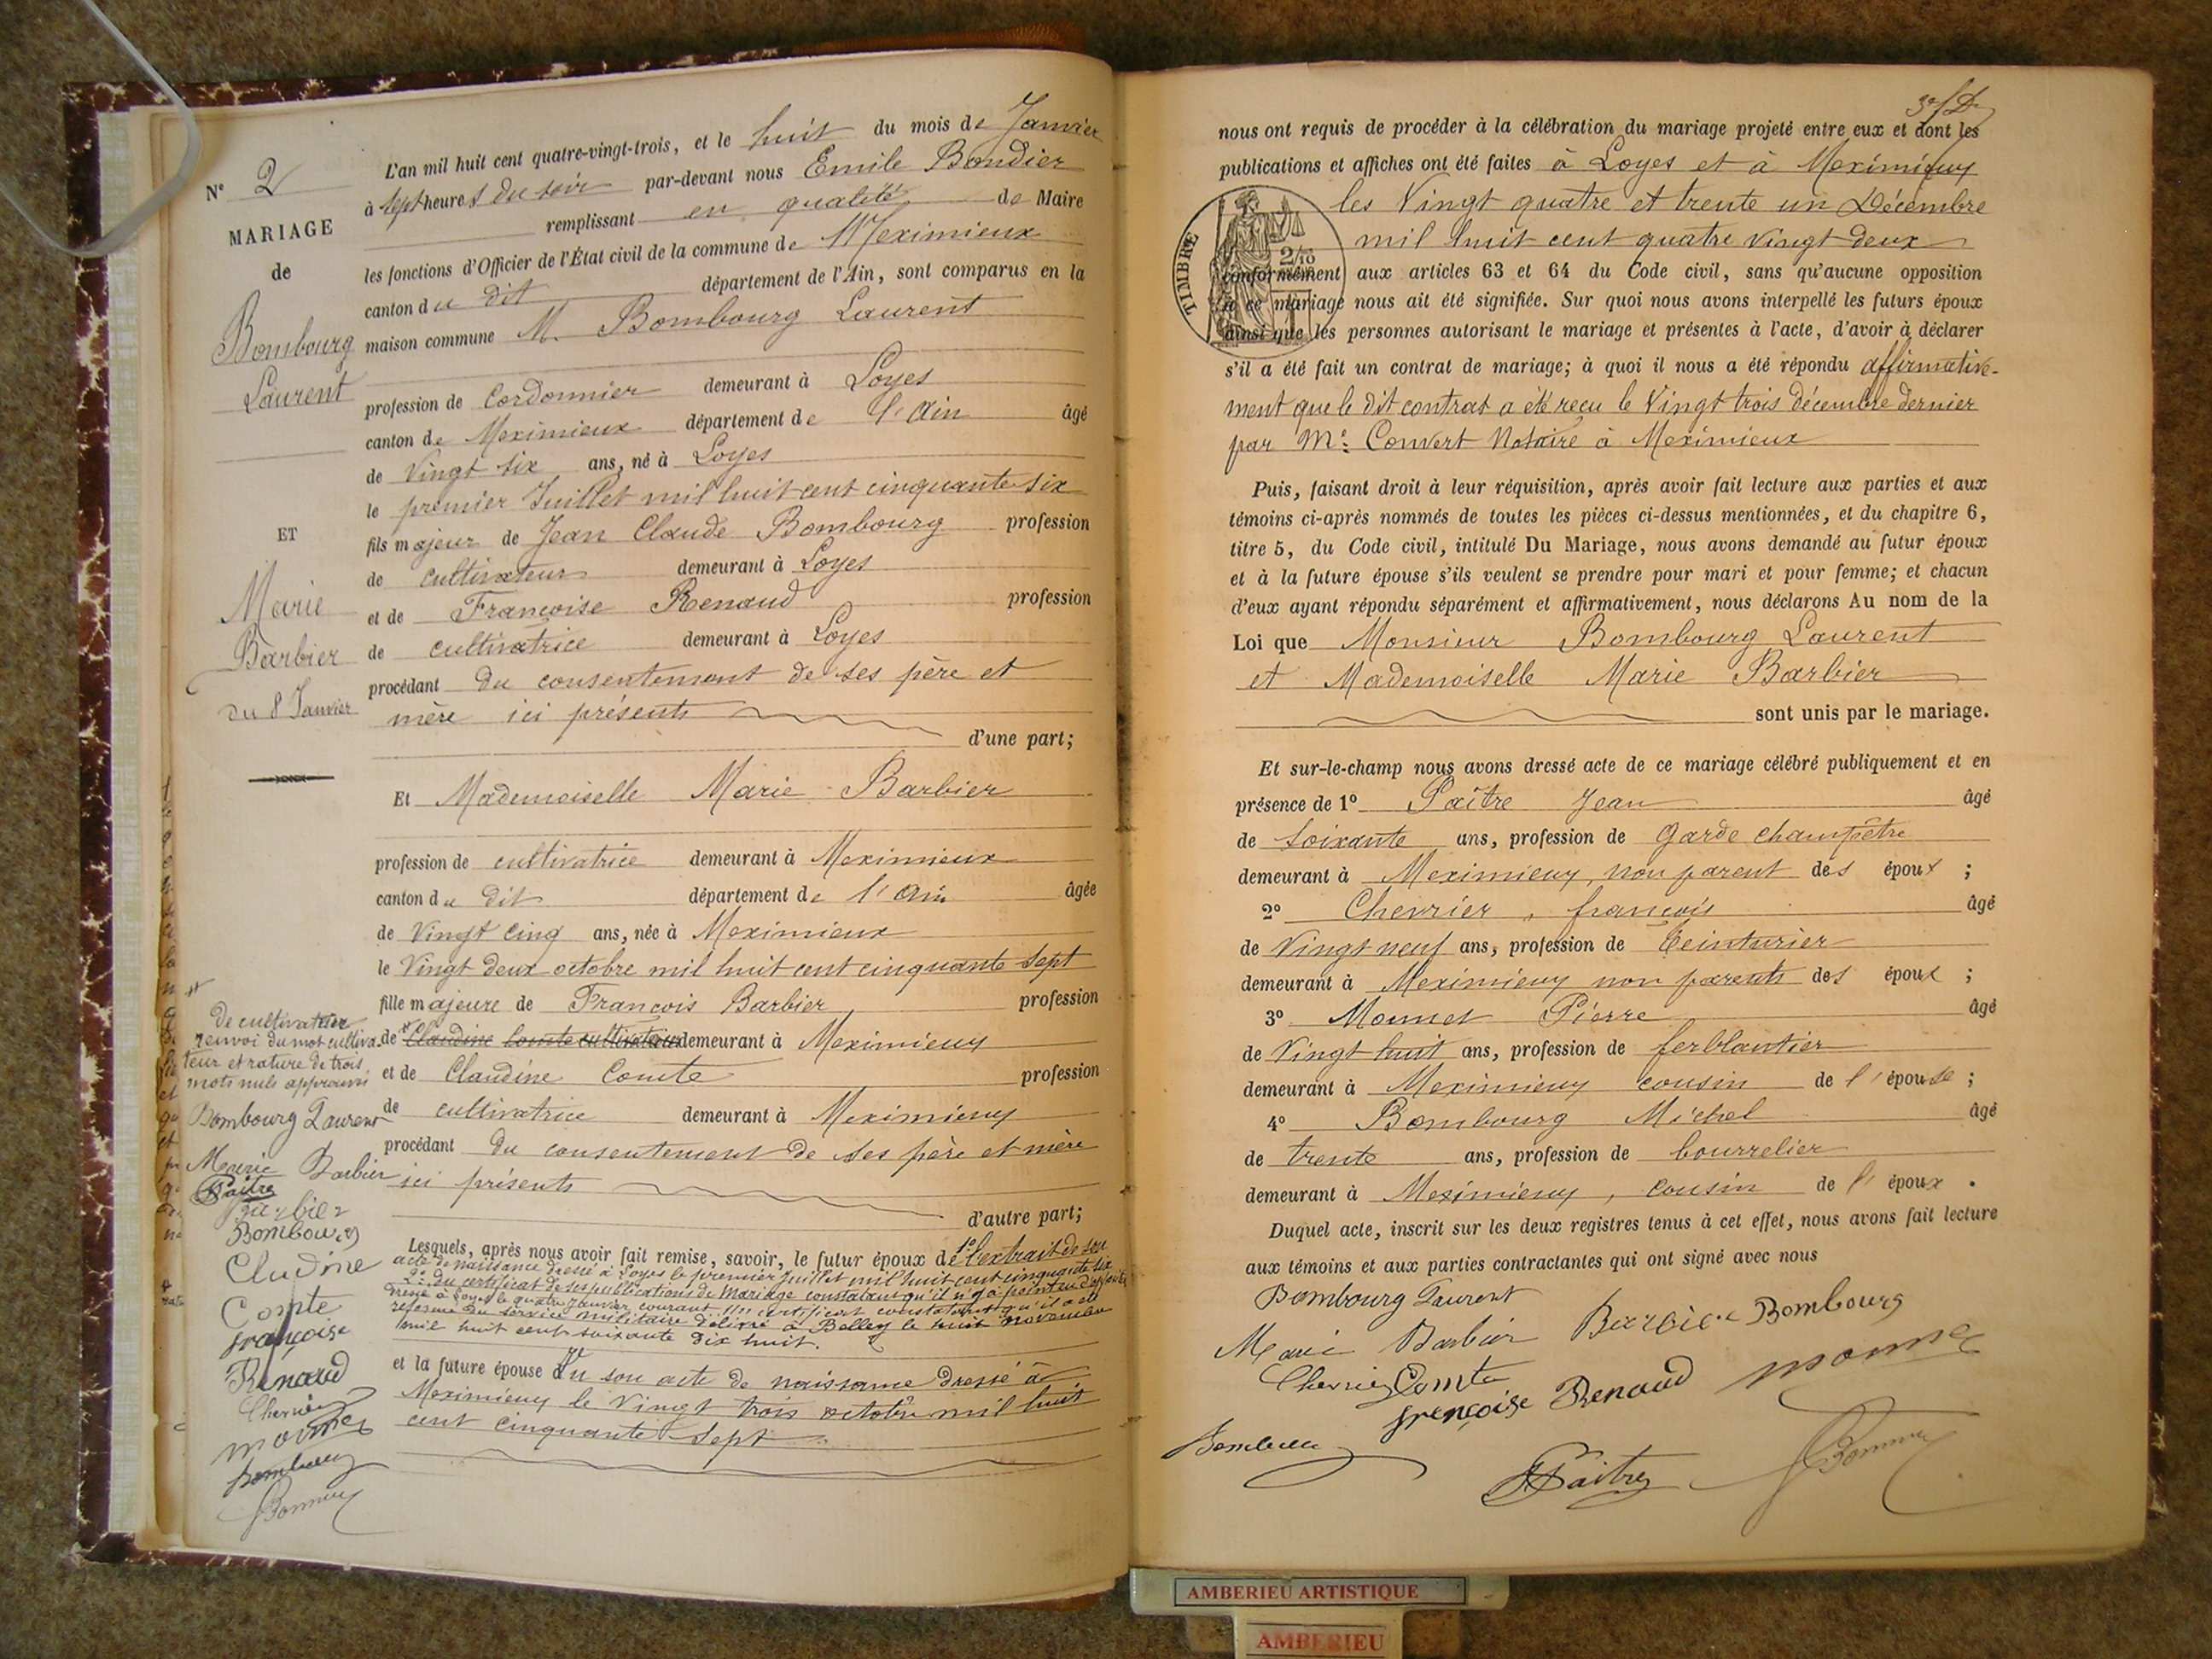 N° 2
MARIAGE
de
Bombourg
Laurent
ET
Marie
Barbier
du 8 Janvier
L'an mil huit cent quatre-vingt-trois, et le huit du mois de Janvier
à sept heures du soir par-devant nous Emile
remplissant en qualité de Maire
les fonctions d'Officier de l'État civil de la commune de Meximieux
canton du dit département de l'Ain, sont comparus en la
maison commune M. Bombourg Laurent
profession de Cordonnier demeurant à Loyes
canton de Meximieux département de l'Ain âgé
de Vingt six ans, né à Loyes
le premier Juillet mil huit cent cinquante six
fils majeur de Jean Claude Bombourg profession
de cultivateur demeurant à Loyes
et de Françoise Renaud profession
de cultivatrice demeurant à Loyes
procédant du consentement de ses père et
mère ici présents
d'une part;
Et Mademoiselle Marie Barbier
profession de cultivatrice demeurant à Meximieux
canton du dit département de l'Ain âgée
de Vingt cinq ans, née à Meximieux
le Vingt deux octobre mil huit cent cinquante sept
fille majeure de François Barbier profession
de Claudine Comte cultivatrice demeurant à Meximieux
et de Claudine Comte profession
de cultivatrice demeurant à Meximieux
procédant du consentement de ses père et mère
ici présents
d'autre part;
Lesquels, après nous avoir fait remise, savoir, le futur époux de 1° l'extrait de son
acte de naissance dressé à Loyes le premier juillet mil huit cent cinquante six
2° du certificat de ses publications de Mariage constatant qu'il n'y a point eu d'opposition
dressé à Loyes le quatre Janvier courant certificat constatant qu'il a été
réformé du service militaire délivré à Belley le huit novembre
mil huit cent soixante dix huit.
et la future épouse du son acte de naissance dressé à
Meximieux le Vingt trois octobre mil huit
cent cinquante sept
renvoi du mot cultiva-
teur et rature de trois
mots nuls approuvé
Bombourg Laurent
Marie Barbier
Paitre
Barbier
Bombourg
Cludine
Compte
françoise
Rénaud
Chevrier
nous ont requis de procéder à la célébration du mariage projeté entre eux et dont les
publications et affiches ont été faites à Loyes et à Meximieux
les Vingt quatre et trente un Décembre
mil huit cent quatre vingt deux
TIMBRE
2/10
conformément aux articles 63 et 64 du Code civil, sans qu'aucune opposition
à ce mariage nous ait été signifiée. Sur quoi nous avons interpellé les futurs époux
ainsi que les personnes autorisant le mariage et présentes à l'acte, d'avoir à déclarer
s'il a été fait un contrat de mariage; à quoi il nous a été répondu affirmative-
ment que le dit contrat a été reçu le Vingt trois décembre dernier
par Me Convert Notaire à Meximieux
Puis, faisant droit à leur réquisition, après avoir fait lecture aux parties et aux
témoins ci-après nommés de toutes les pièces ci-dessus mentionnées, et du chapitre 6,
titre 5, du Code civil, intitulé Du Mariage, nous avons demandé au futur époux
et à la future épouse s'ils veulent se prendre pour mari et pour femme; et chacun
d'eux ayant répondu séparément et affirmativement, nous déclarons Au nom de la
Loi que Monsieur Bombourg Laurent
et Mademoiselle Marie Barbier
sont unis par le mariage.
Et sur-le-champ nous avons dressé acte de ce mariage célébré publiquement et en
présence de 1° Paître Jean âgé
de soixante ans, profession de garde champêtre
demeurant à Meximieux, non parent des époux ;
2° Chevrier, françois âgé
de Vingt neuf ans, profession de teinturier
demeurant à Meximieux non parents des époux ;
3° Monnet Pierre âgé
de Vingt huit ans, profession de ferblantier
demeurant à Meximieux cousin de l'épouse ;
4° Bombourg Michel âgé
de trente ans, profession de bourrelier
demeurant à Meximieux, cousin de l'époux.
Duquel acte, inscrit sur les deux registres tenus à cet effet, nous avons fait lecture
aux témoins et aux parties contractantes qui ont signé avec nous
Bombourg Laurent
Marie Barbier Barbier Bombourg
Chevrier Comte
françoise Renaud
Paitre
AMBERIEU ARTISTIQUE
AMBERIEU